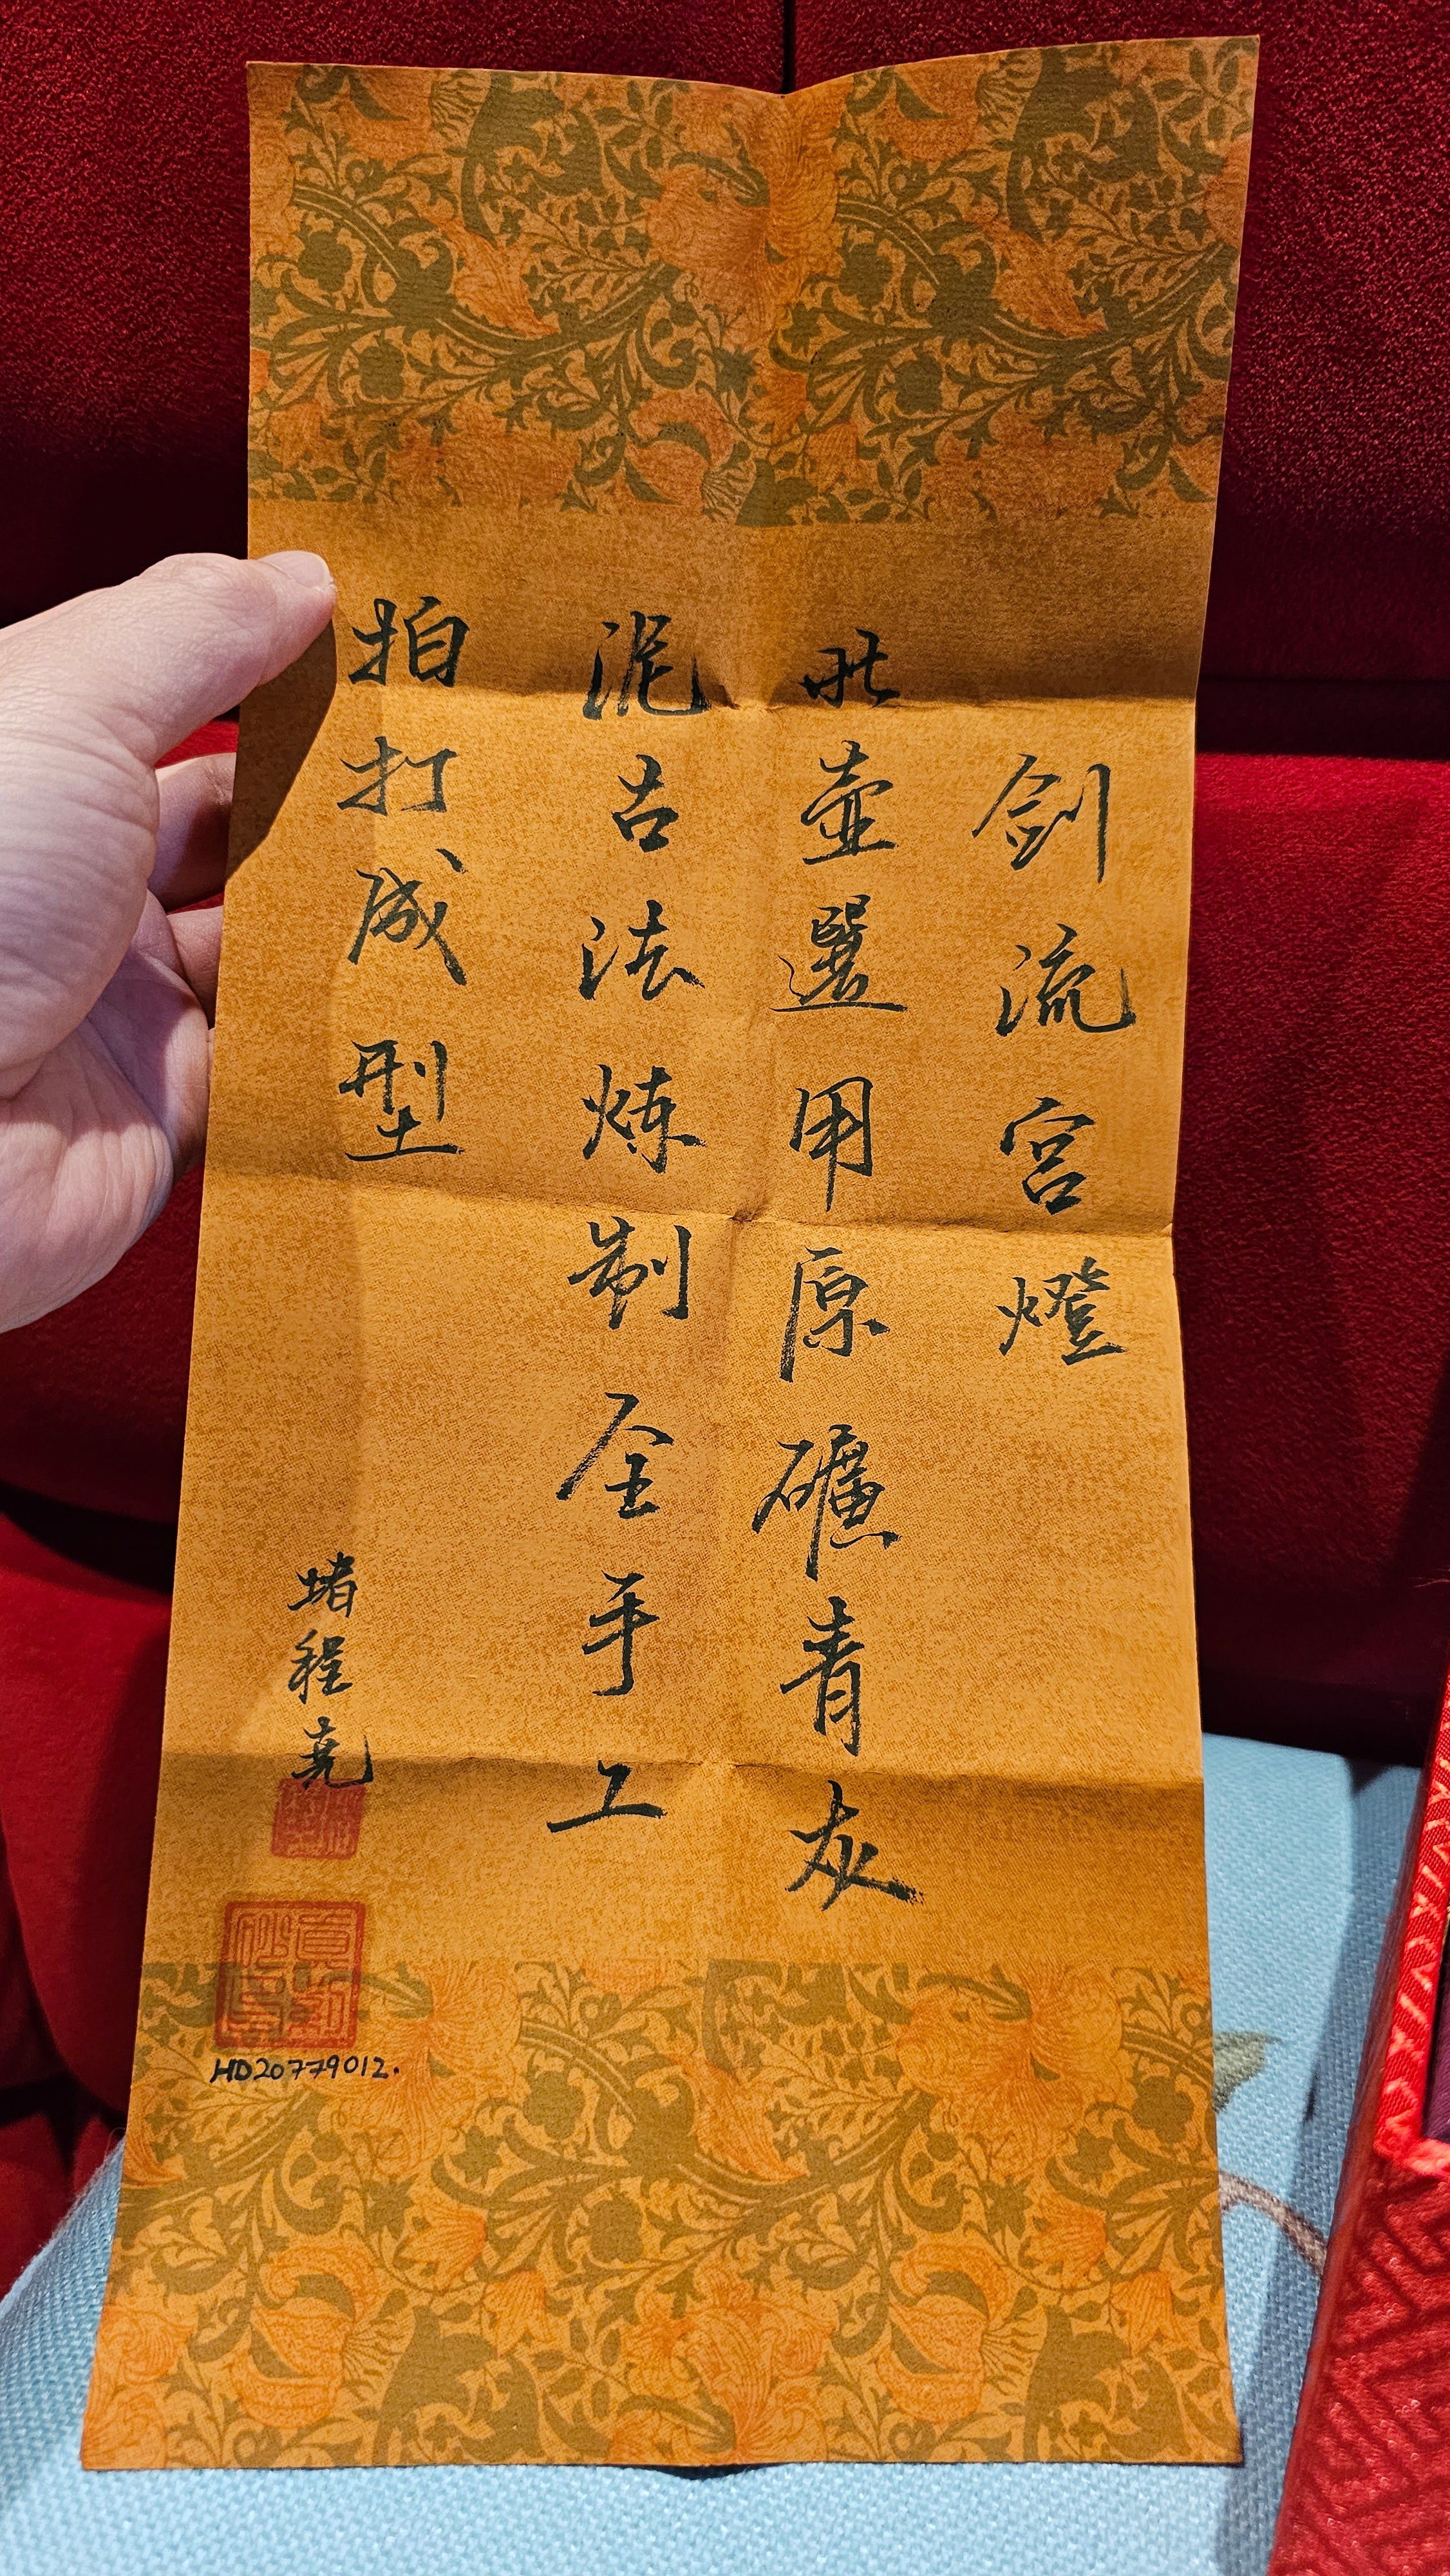 剑流宫燈
此壶選用原礦青灰
泥古法炼制全手工
拍打成型
堵程尭
HD20779012.